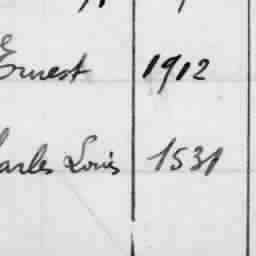 Ernest 1912
arles Louis 1531